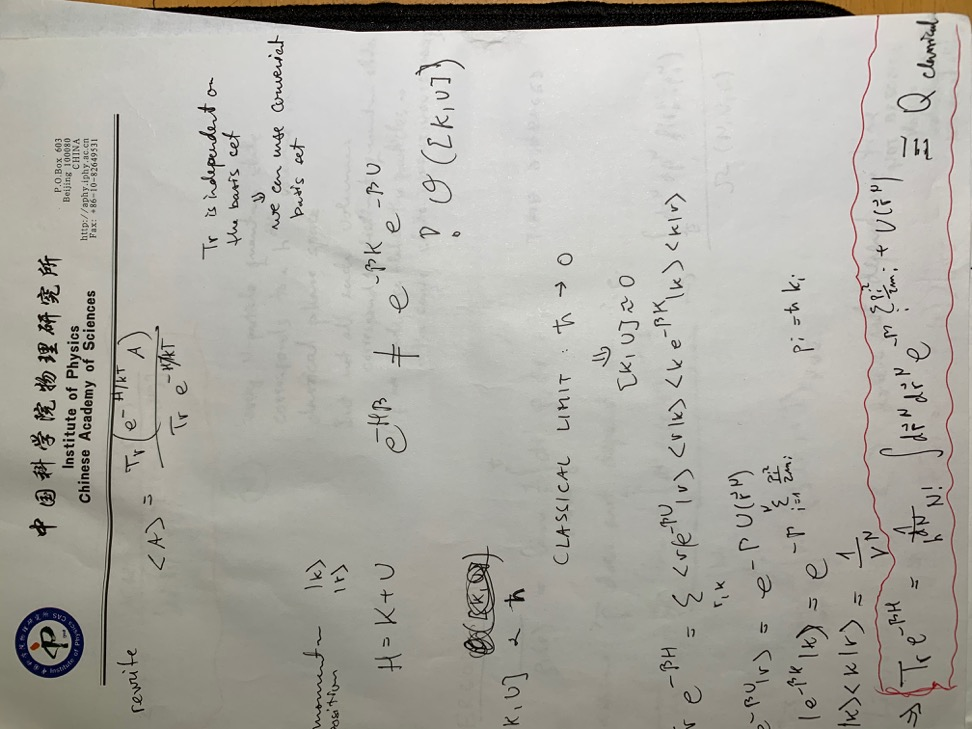 中国科学院物理研究所
Institute of Physics
Chinese Academy of Sciences
P.O.Box 603
Beijing 100080
CHINA
http://aphy.iphy.ac.cn
Fax: +86-10-82649531
rewrite
<A> = Tr(e^{-H/kT} A) / Tr e^{-H/kT}
Tr is independent on
the basis set
⇓
we can use convenient
basis set
momentum |k>
position |r>
H = K + U
e^{-Hβ} ≠ e^{-βK} e^{-βU}
O([K,U])
K,U] ~ ħ
CLASSICAL LIMIT: ħ → 0
⇓
[K,U] ≈ 0
r e^{-βH} = Σ_{r,k} <r|e^{-βU}|r> <r|k> <k e^{-βK}|k> <k|r>
e^{-βU}|r> = e^{-βU(r^N)}
|e^{-βK}|k> = e^{-β Σ_{i=1}^{N} p_i^2/2m_i} p_i = ħk_i
|k><k|r> = 1/V^N
⇒ Tr e^{-βH} = 1/h^N N! ∫dp^N dr^N e^{-β Σ p_i^2/2m_i + U(r^N)} ≡ Q classical